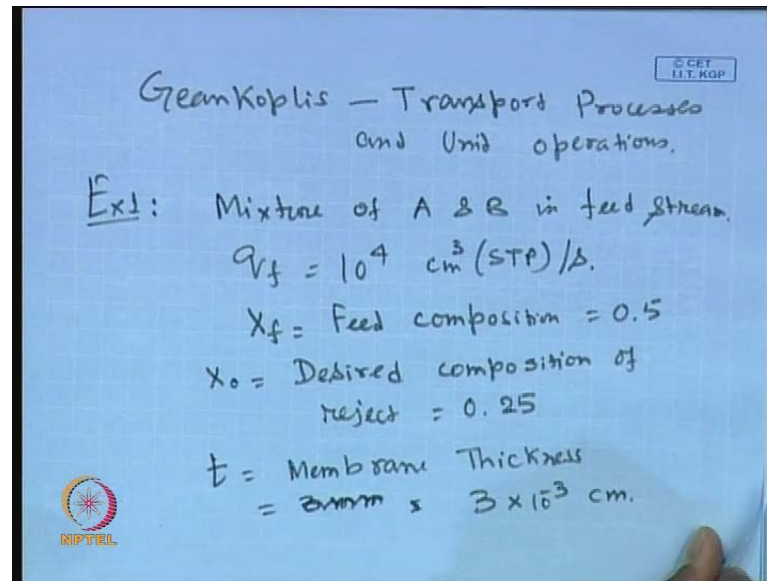 © CET
I.I.T. KGP
Geankoplis – Transport Processes
and Unit operations.
Ex1: Mixture of A & B in feed stream.
qf = 10⁴ cm³ (STP)/s.
xf = Feed composition = 0.5
x₀ = Desired composition of
reject = 0.25
t = Membrane Thickness
= 3 × 10⁻³ cm.
NPTEL